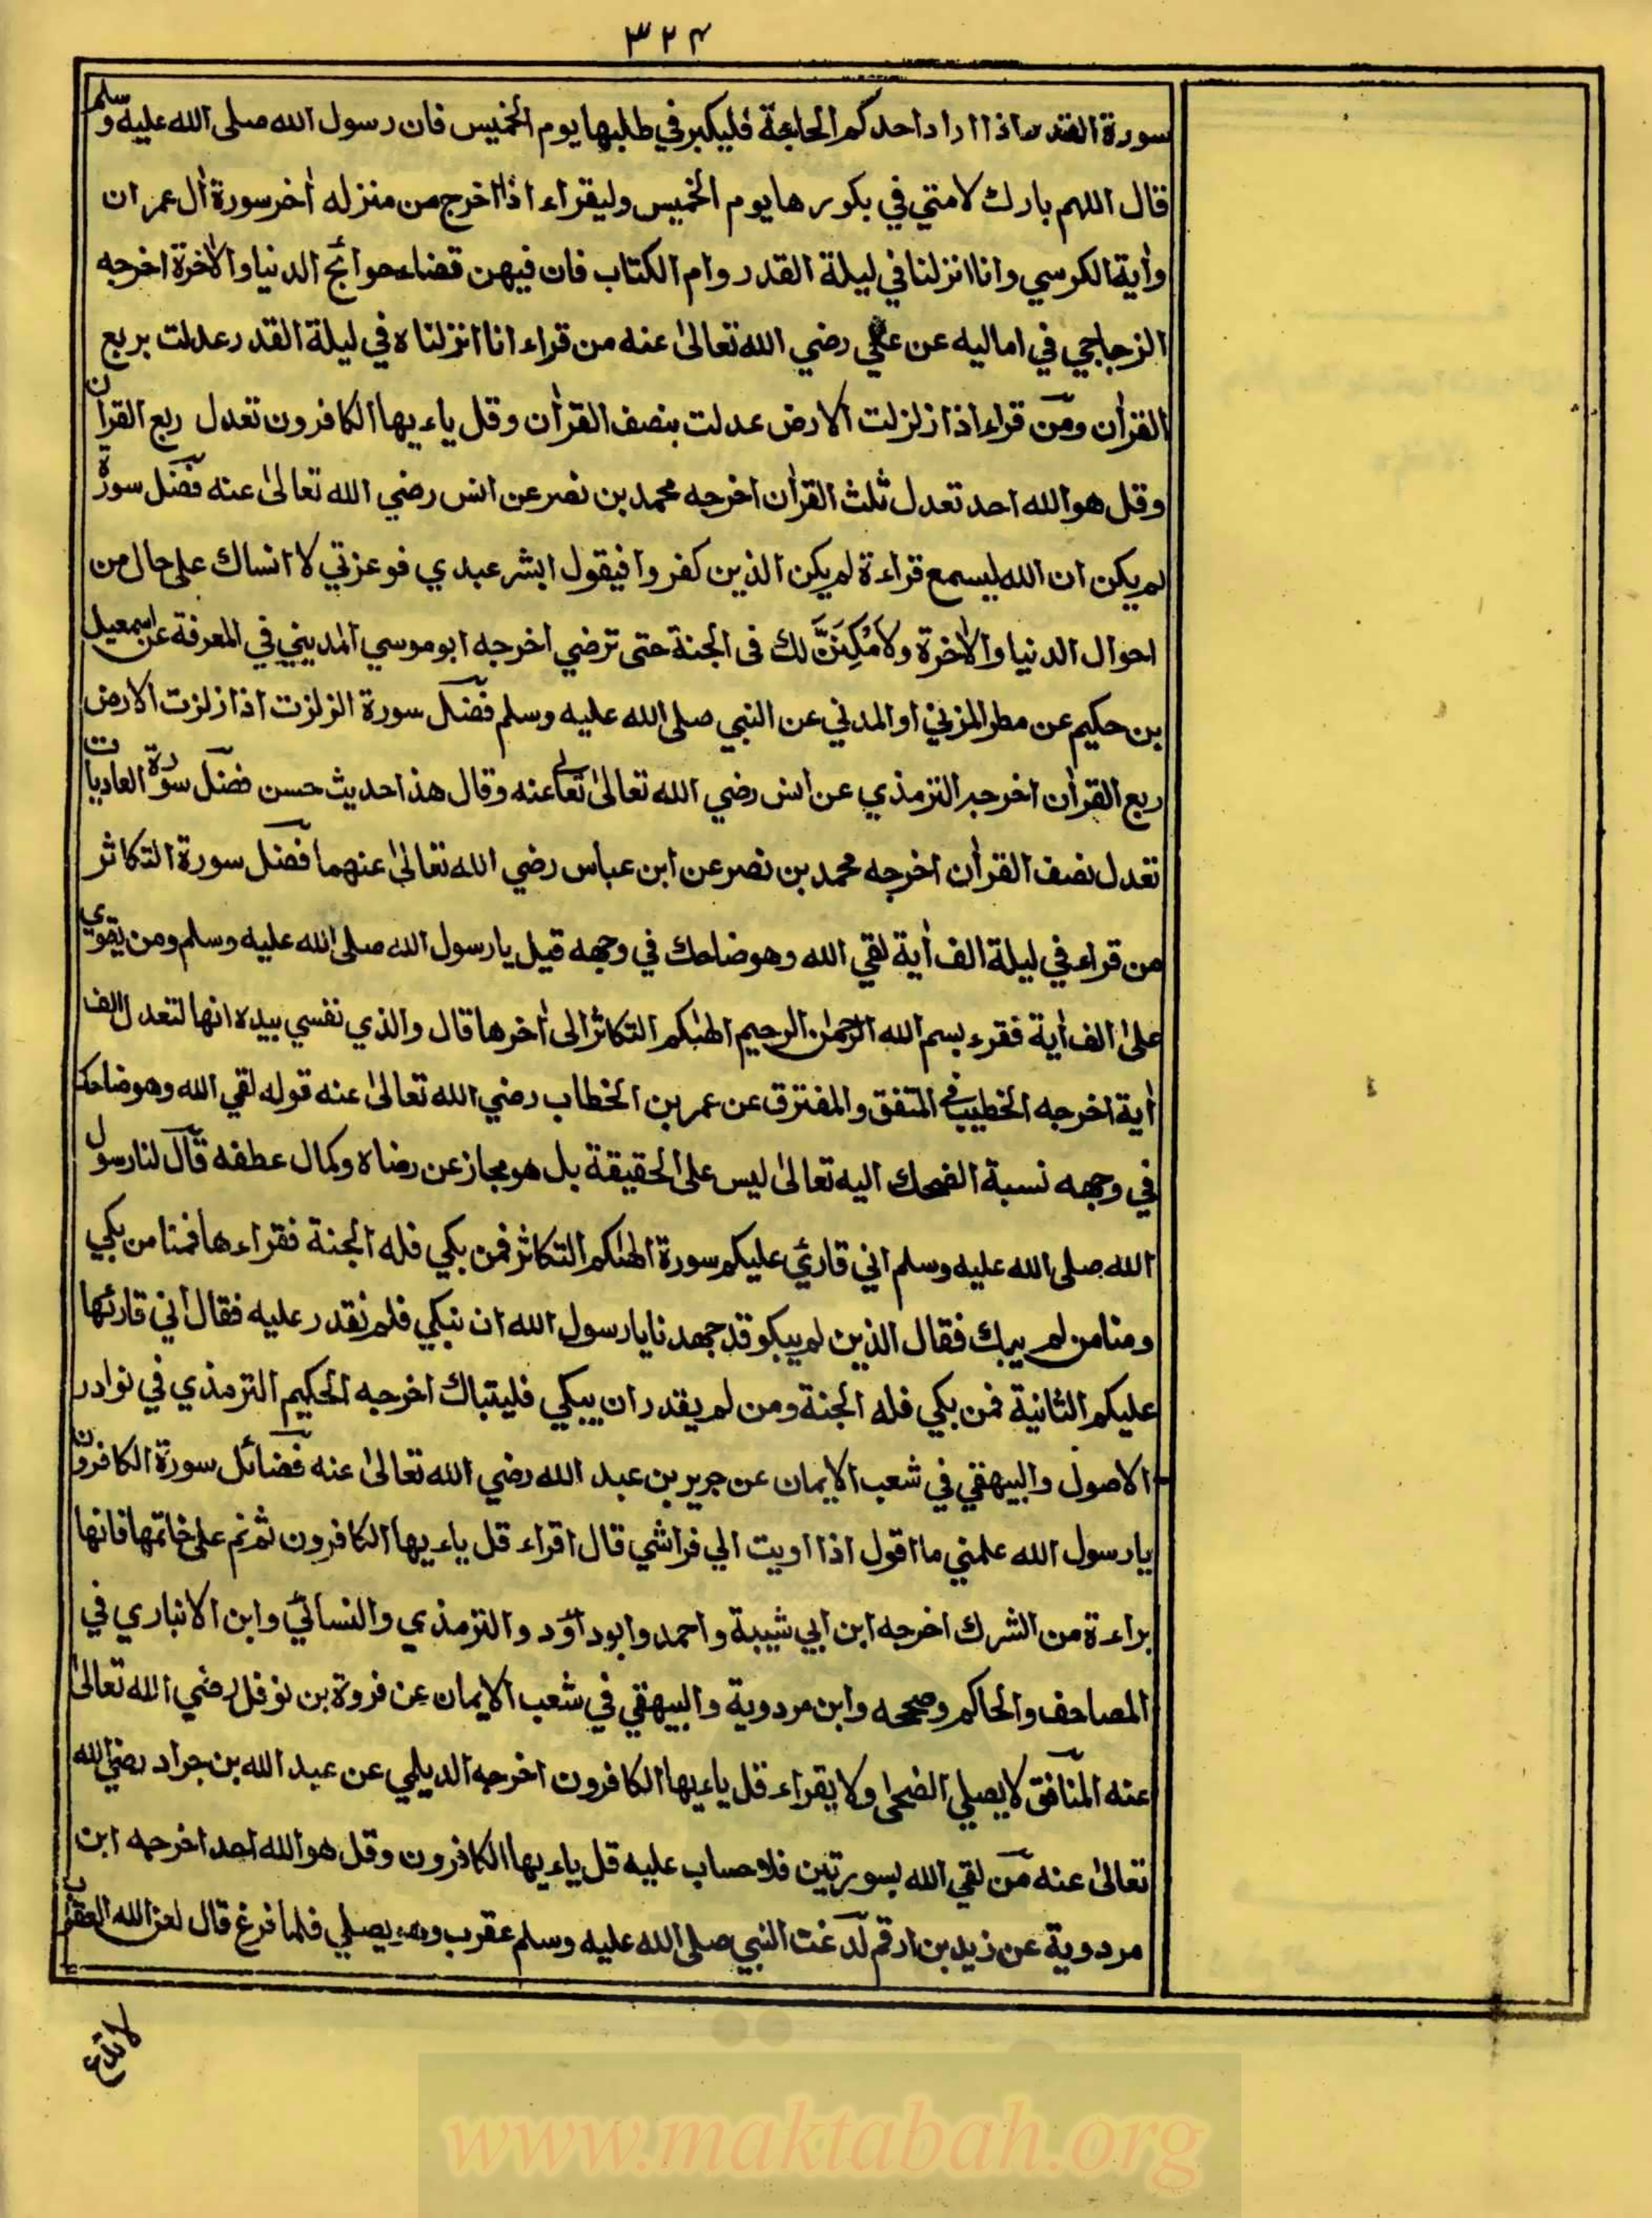 ٣٢٤
سورة القدر اذا اراد احدكم الحاجة فليبكر في طلبها يوم الخميس فان رسول الله صلى الله عليه وسلم
قال اللهم بارك لامتي في بكورها يوم الخميس وليقراء اذا اخرج من منزله اٰخر سورة اٰل عمران
واٰية الكرسي وانا انزلنا في ليلة القدر وام الكتاب فان فيهن قضاء حوائج الدنيا والاٰخرة اخرجه
الزجاجي في اماليه عن علي رضي الله تعالىٰ عنه من قراء انا انزلناه في ليلة القدر عدلت بربع
القراٰن ومن قراء اذا زلزلت الارض عدلت بنصف القراٰن وقل ياءيها الكافرون تعدل ربع القراٰن
وقل هو الله احد تعدل ثلث القراٰن اخرجه محمد بن نصر عن انس رضي الله تعالىٰ عنه فضل سورة
لم يكن ان الله ليسمع قراءة لم يكن الذين كفروا فيقول ابشر عبدي فوعزتي لا انساك على حال من
احوال الدنيا والاٰخرة ولاَمُكِنَنَّ لك فى الجنة حتى ترضي اخرجه ابو موسي المديني في المعرفة عن اسمعيل
بن حكيم عن مطر المزني او المدني عن النبي صلى الله عليه وسلم فضل سورة الزلزت اذا زلزت الارض
ربع القراٰن اخرجه الترمذي عن انس رضي الله تعالىٰ تعالى عنه وقال هذا حديث حسن فضل سورة العاديات
تعدل نصف القراٰن اخرجه محمد بن نصر عن ابن عباس رضي الله تعالىٰ عنهما فضل سورة التكاثر
من قراء في ليلة الف اٰية لقي الله وهو ضاحك في وجهه قيل يا رسول الله صلى الله عليه وسلم ومن يقوي
علىٰ الف اٰية فقرء بسم الله الرحمٰن الرحيم الهٰىكم التكاثر الىٰ اٰخرها قال والذي نفسي بيده انها لتعدل الف
اٰية اخرجه الخطيب في المتفق والمفترق عن عمر بن الخطاب رضي الله تعالىٰ عنه قوله لقي الله وهو ضاحك
في وجهه نسبة الضحك اليه تعالىٰ ليس على الحقيقة بل هو مجاز عن رضاه وكمال عطفه قال لنا رسول
الله صلى الله عليه وسلم اني قارئ عليكم سورة الهٰىكم التكاثر فمن بكي فله الجنة فقراءها فمنا من بكي
ومنا من لم يبك فقال الذين لم يبكو قد جهدنا يا رسول الله ان نبكي فلم نقدر عليه فقال اني قارئها
عليكم الثانية فمن بكي فله الجنة ومن لم يقدر ان يبكي فليتباك اخرجه الحكيم الترمذي في نوادر
الاصول والبيهقي في شعب الايمان عن جرير بن عبد الله رضي الله تعالىٰ عنه فضائل سورة الكافرون
يا رسول الله علمني ما اقول اذا اويت الي فراشي قال اقراء قل ياءيها الكافرون ثم نم على خاتمها فانها
براءة من الشرك اخرجه ابن ابي شيبة واحمد وابوداؤد والترمذي والنسائي وابن الانباري في
المصاحف والحاكم وصححه وابن مردوية والبيهقي في شعب الايمان عن فروة بن نوفل رضي الله تعالىٰ
عنه المنافق لا يصلي الضحىٰ ولا يقراء قل ياءيها الكافرون اخرجه الديلمي عن عبد الله بن جراد رضي الله
تعالىٰ عنه من لقي الله بسورتين فلا حساب عليه قل ياءيها الكافرون وقل هو الله احد اخرجه ابن
مردوية عن زيد بن ارقم لدغت النبي صلى الله عليه وسلم عقرب وهو يصلي فلما فرغ قال لعن الله العقرب
لا تدع
www.maktabah.org